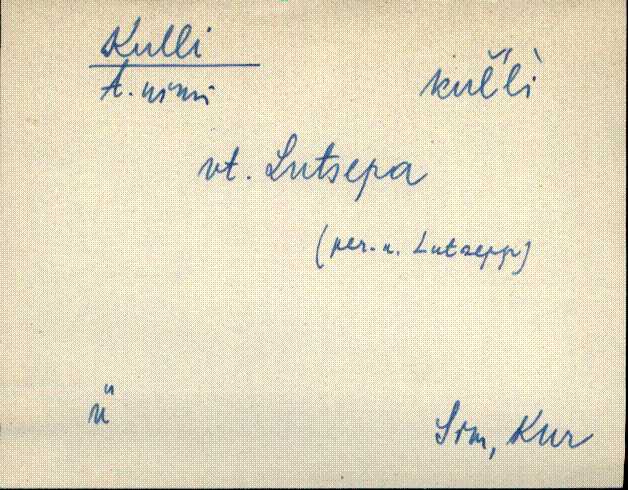 Kulli kul̆l̀i
t. nimi
vt. Lutsepa
(per. n. Lutsepp)
ü Srm, Kur